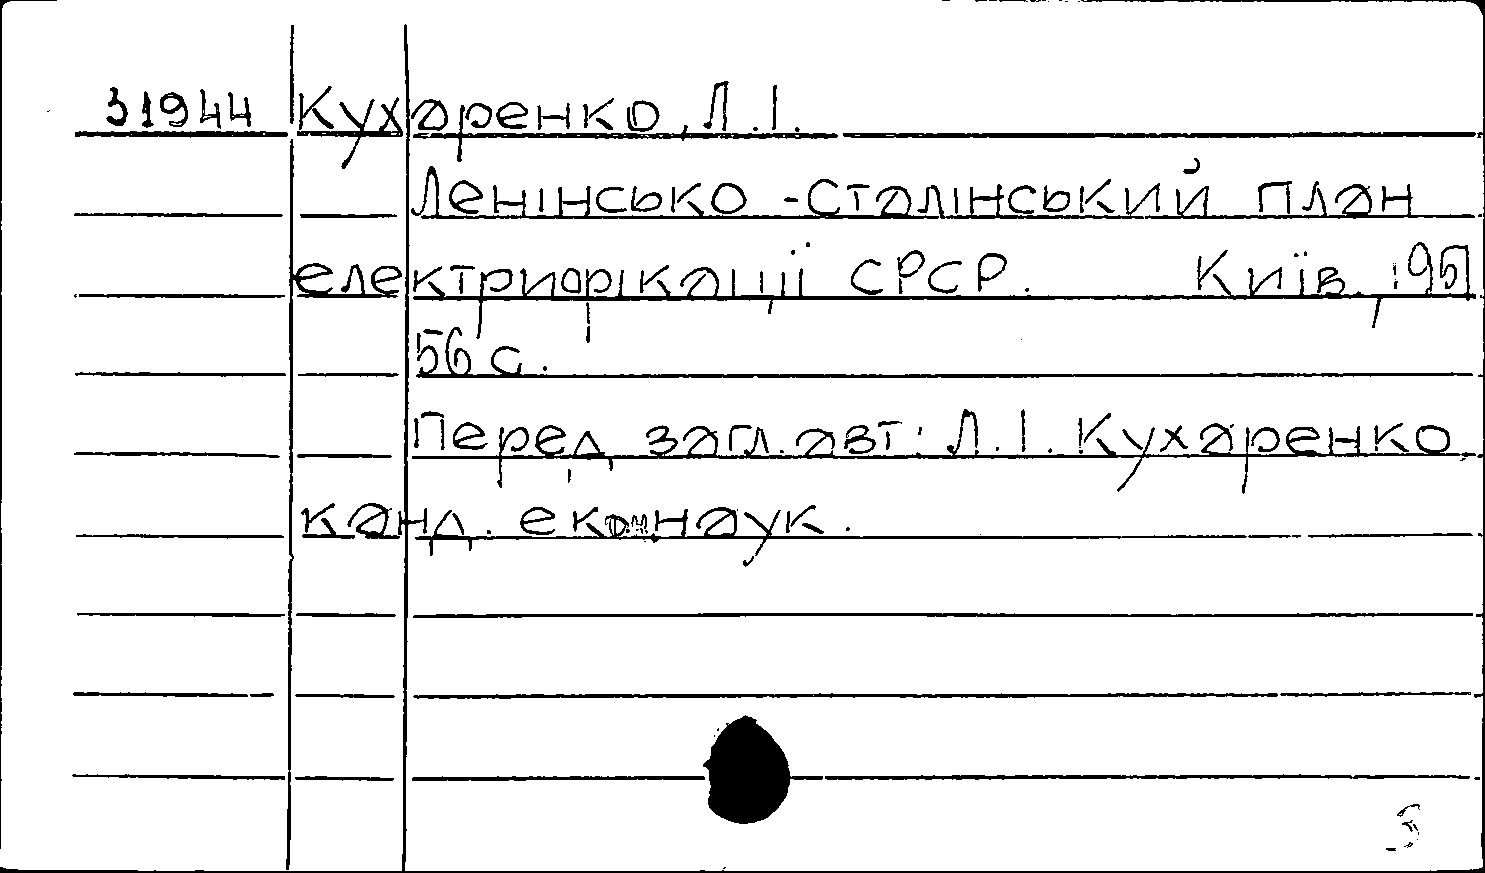 31944 Кухаренко, Л.І.
Ленінсько-Сталінський план
електрифікації СРСР. Київ, 1951
56 с.
Перед загл. авт: Л.І. Кухаренко,
канд. екон. наук.